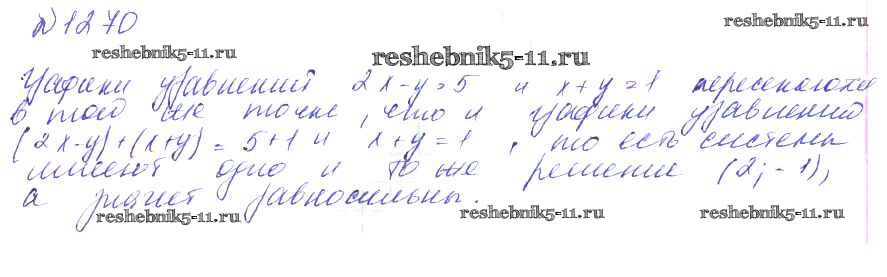 №1270
reshebnik5-11.ru
reshebnik5-11.ru reshebnik5-11.ru
Графики уравнений 2x-y=5 и x+y=1 пересекаются
в той же точке, что и графики уравнений
(2x-y)+(x+y)=5+1 и x+y=1, то есть системы
имеют одно и то же решение (2;-1),
а значит равносильны.
reshebnik5-11.ru reshebnik5-11.ru reshebnik5-11.ru